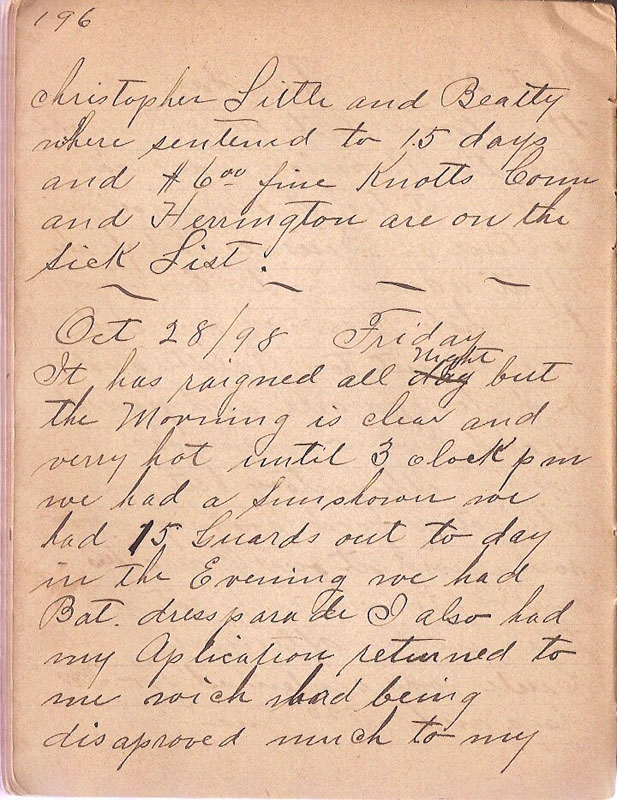 196
christopher Little and Beatty
where sentened to 15 days
and $6.00 fine Knotts Conn
and Herrington are on the
sick List.
Oct 28/98 Friday
It has raigned all day Night but
the Morning is clear and
verry hot until 3 clock pm
we had a sunshower we
had 15 Guards out to day
in the Evening we had
Bat. dressparade I also had
my Aplication returned to
me wich had being
disaproved much to my